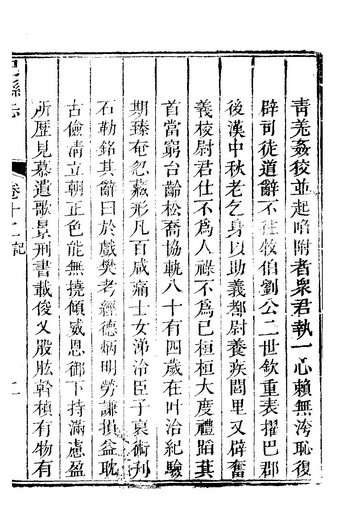 青羌姦狡並起陷附者衆君執一心賴無洿恥復
辟司徒道辭不往牧伯劉公二世欽重表擢巴郡
後漢中秋老乞身以助義都尉養疾閭里又辟奮
義校尉君仕不為人祿不為已桓桓大度禮蹈其
首當窮台齡松喬協軌八十有四歲在叶治紀驗
期臻奄忽藏形凡百咸痛士女涕泠臣子哀術刋
石勒銘其辭曰於戲樊考經德炳明勞謙損益耽
古儉清立朝正色能無撓傾威恩御下持滿慮盈
所歷見慕遺歌景刑書載俊乂股肱幹楨有物有
縣志
卷十二記
二